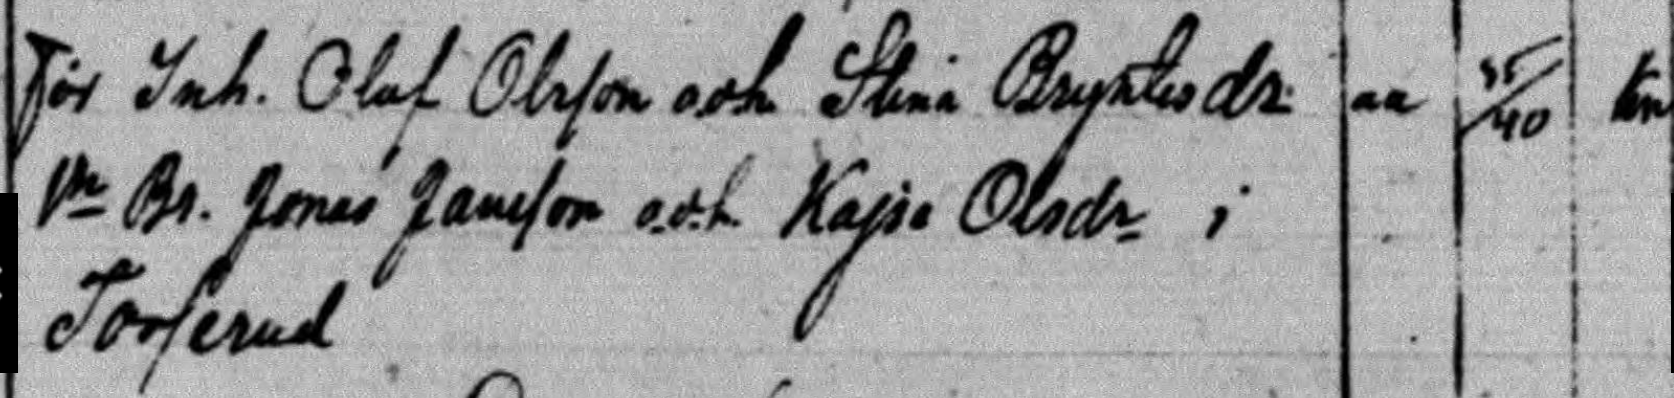 För Inh. Olof Olsson och Stina Bryntesdr. aa 35/40 
Vn Br. Jonas Jansson och Kajsa Olsdr i
Torserud